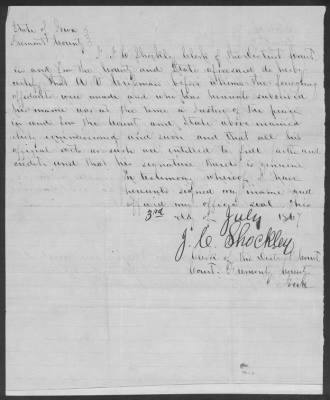 State of Iowa
Fremont County
I J. C. Shockley Clerk of the District Court
in and for the County and State aforesaid do hereby
certify that A. V. before whom the foregoing
affidavit were made and who has hereunto subscribed
his name was at the time a Justice of the peace
in and for the County and State above named
duly commissioned and sworn and that all his
official acts as such are entitled to full faith and
credit and that his signature thereto is genuine
In testimony whereof I have
hereunto signed my name and
affixed my official seal this
3rd day of July 1867
J. C. Shockley
Clerk of the District Court
Fremont County